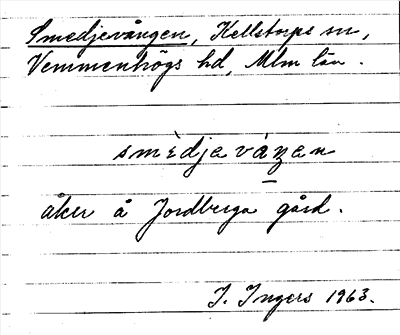 Smedjevången, Kellstorps sn,
Vemmenhögs hd, Mlm län.
smèdjeváŋen
åker å Jordberga gård.
I. Ingers 1963.